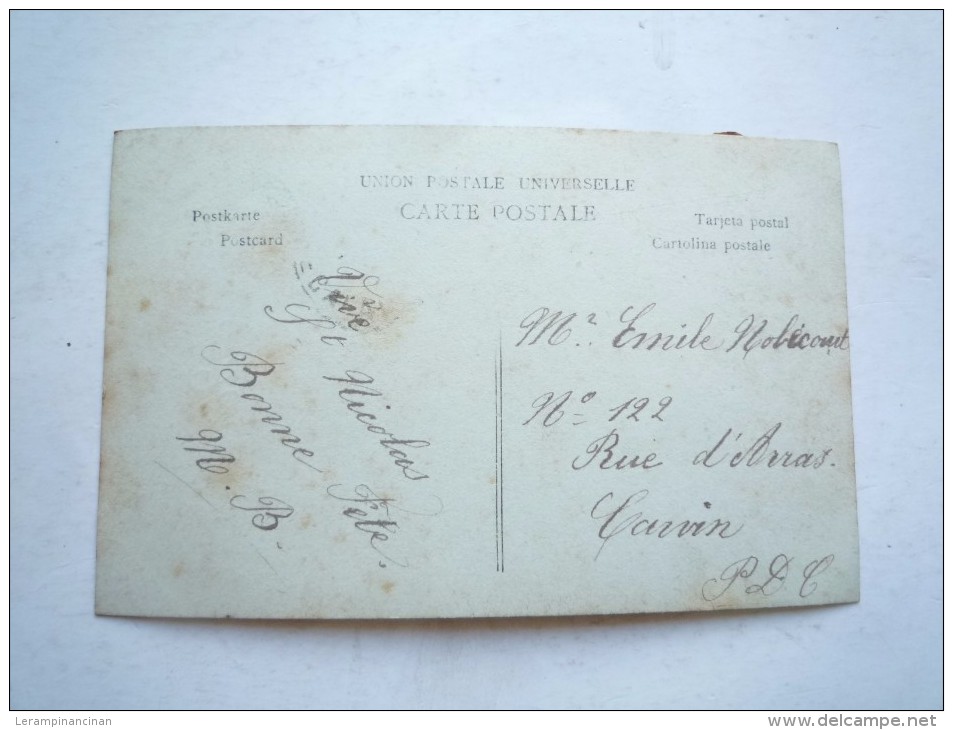 UNION POSTALE UNIVERSELLE
CARTE POSTALE
Postkarte
Postcard
Tarjeta postal
Cartolina postale
Vive
St Nicolas
Bonne Fête.
M. B.
Mr. Emile Nobécourt
No 122
Rue d'Arras.
Carvin
P. D. C
Lerampinancinan
www.delcampe.net